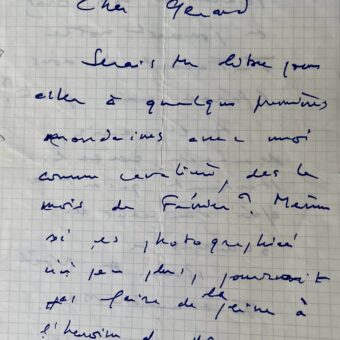 Cher Gérard
Serais tu libre pour
aller à quelques premières
mondaines avec moi
comme cavalier, dès le
mois de Février? Même
si es photographié
un peu plus, pourrait
faire de la peine à
l'héroïne